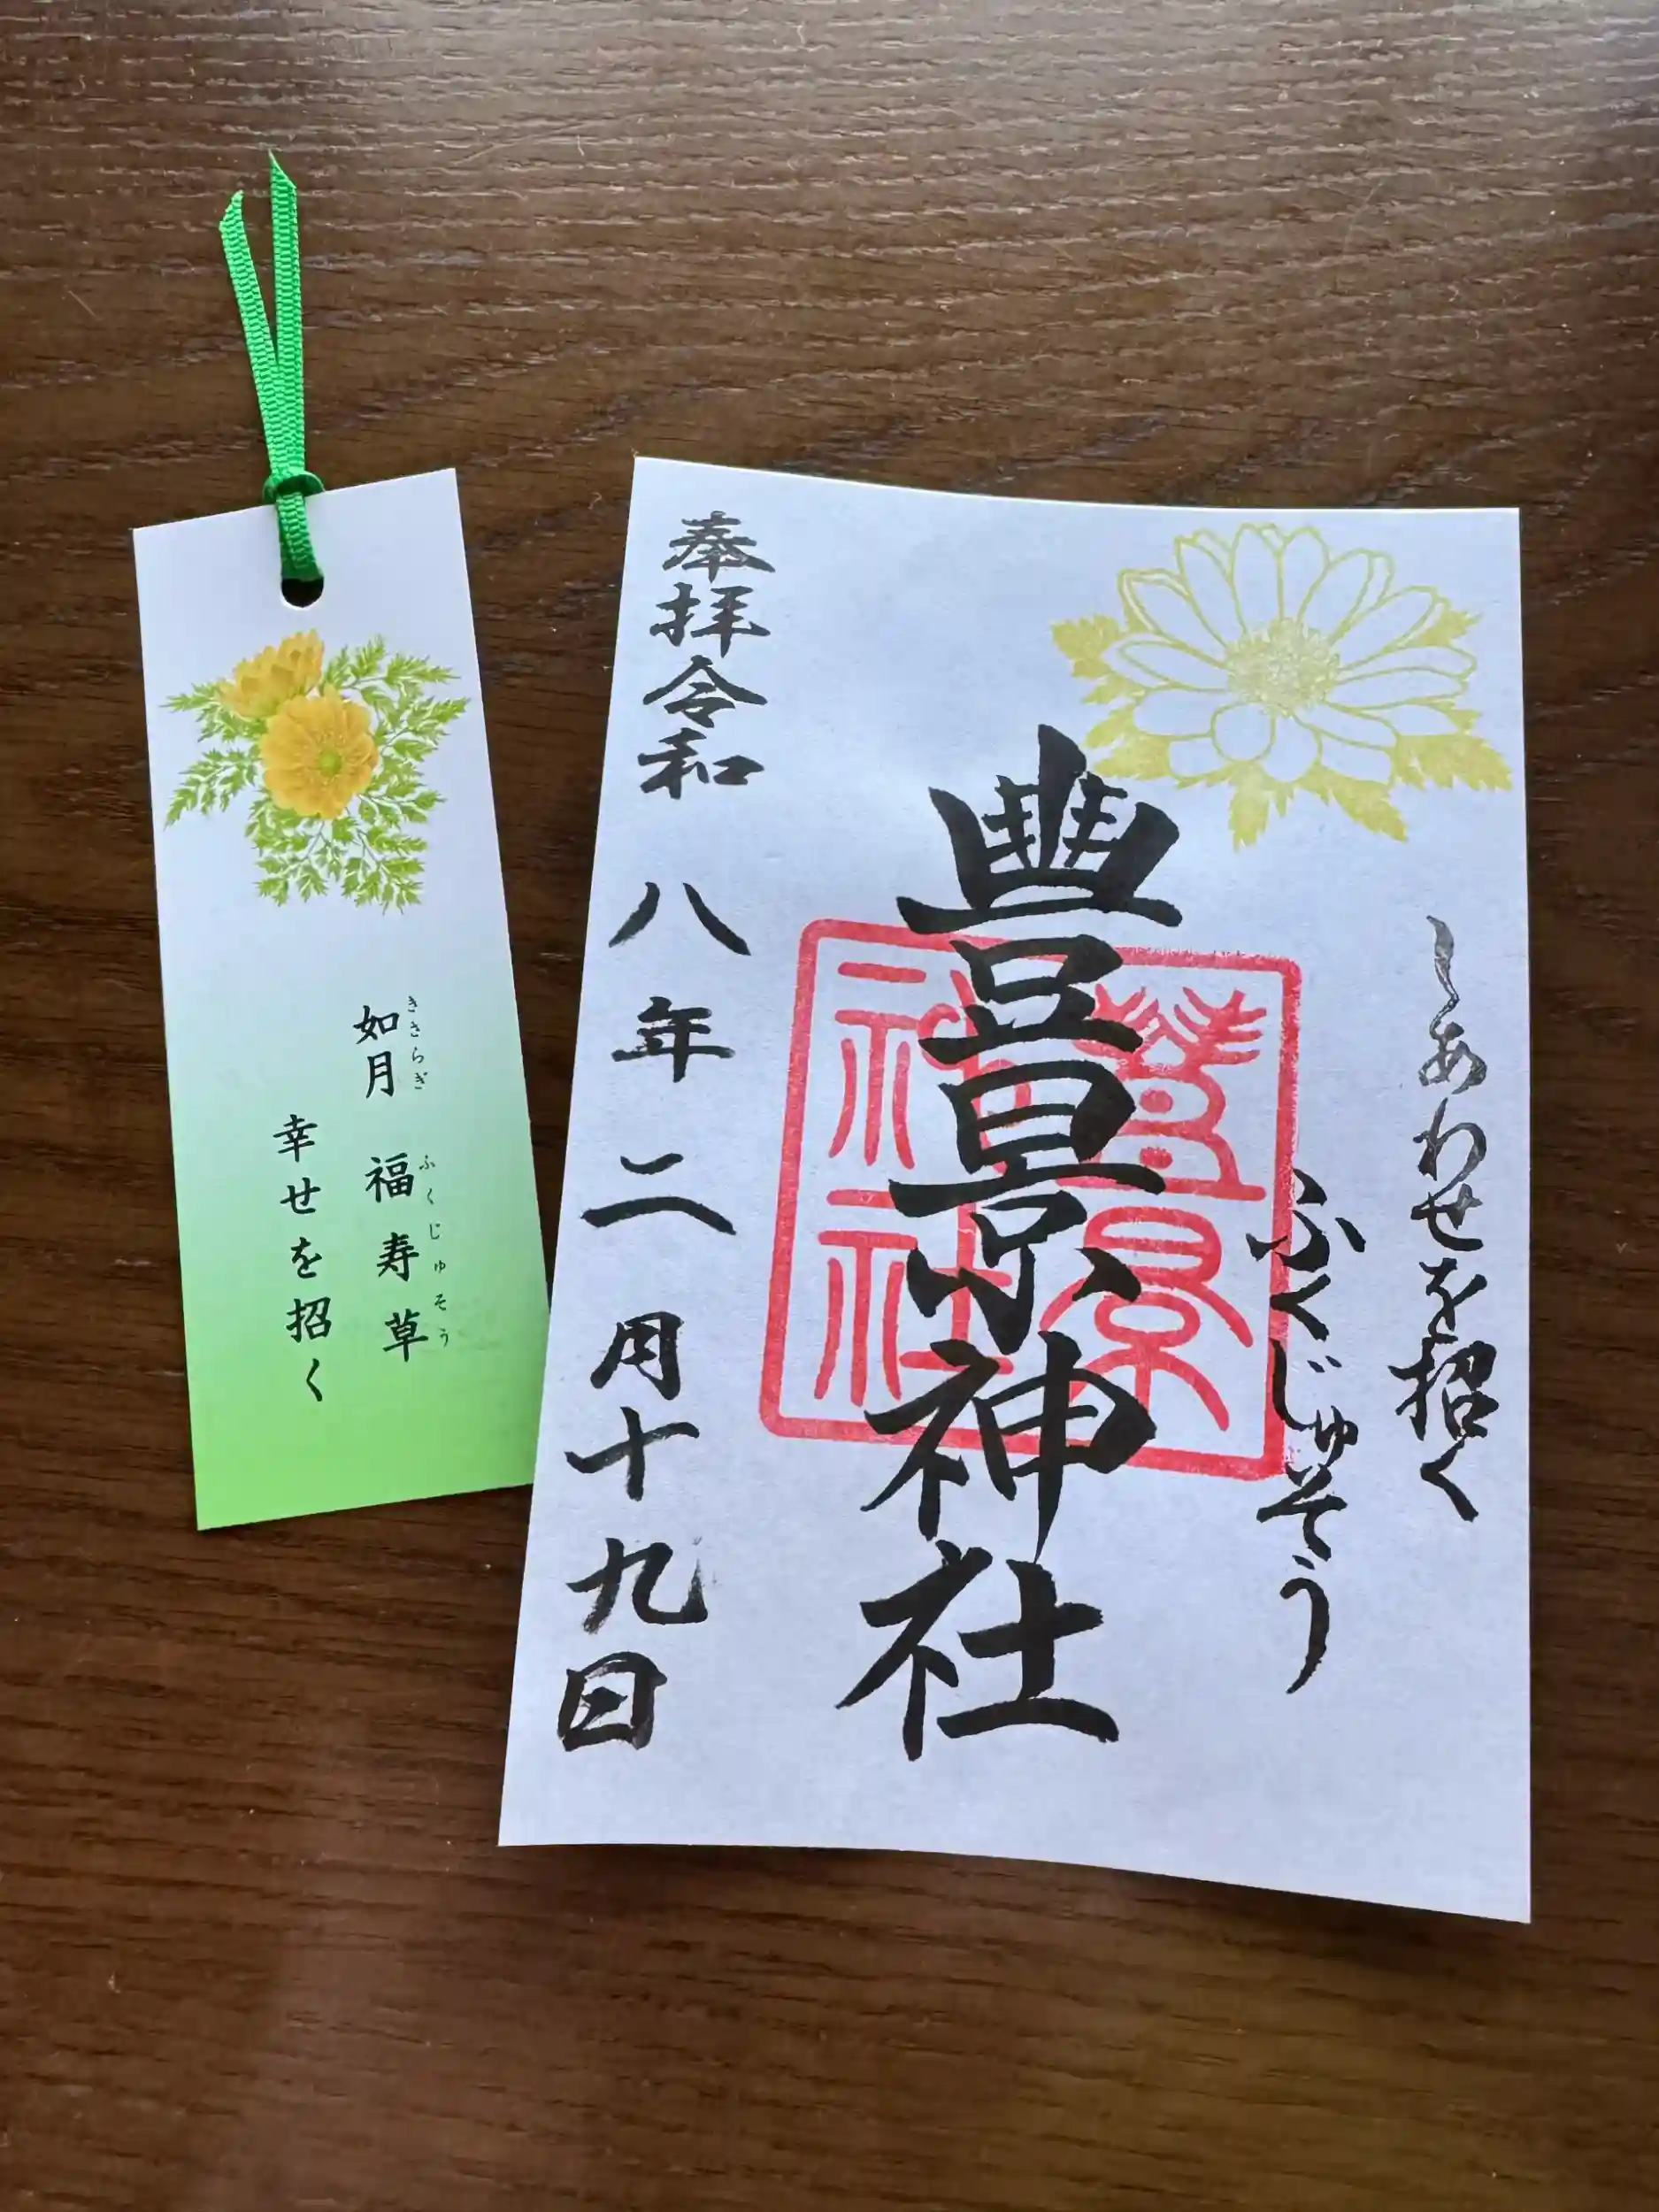 如月 福寿草
きさらぎ ふくじゅそう
幸せを招く
しあわせを招く
ふくじゅそう
豊景神社
奉拝令和八年二月十九日
豊景
神社